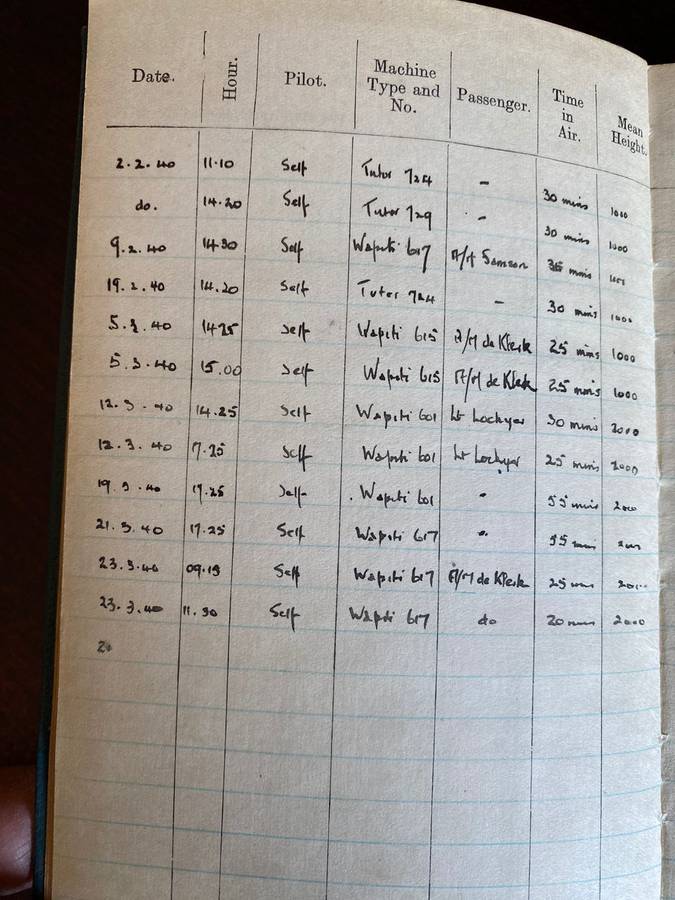 Date. Hour. Pilot. Machine Type and No. Passenger. Time in Air. Mean Height.
2.2.40 11.10 Self Tutor 724 – 30 mins 1000
do. 14.20 Self Tutor 729 – 30 mins 1000
9.2.40 14.30 Self Wapiti 617 A/M Samson 35 mins
19.2.40 14.20 Self Tutor 724 – 30 mins 1000
5.3.40 1425 Self Wapiti 615 A/M de Klerk 25 mins 1000
5.3.40 15.00 Self Wapiti 615 A/M de Klerk 25 mins 1000
12.3.40 14.25 Self Wapiti 601 Lt Lockyer 30 mins 2000
12.3.40 7.25 Self Wapiti 601 Lt Lockyer 25 mins 2000
19.3.40 17.25 Self Wapiti 601 " 55 mins 2000
21.3.40 17.25 Self Wapiti 617 " 55 mins
23.3.40 09.15 Self Wapiti 617 A/M de Klerk 25 mins
23.3.40 11.30 Self Wapiti 617 do 20 mins 2000
2